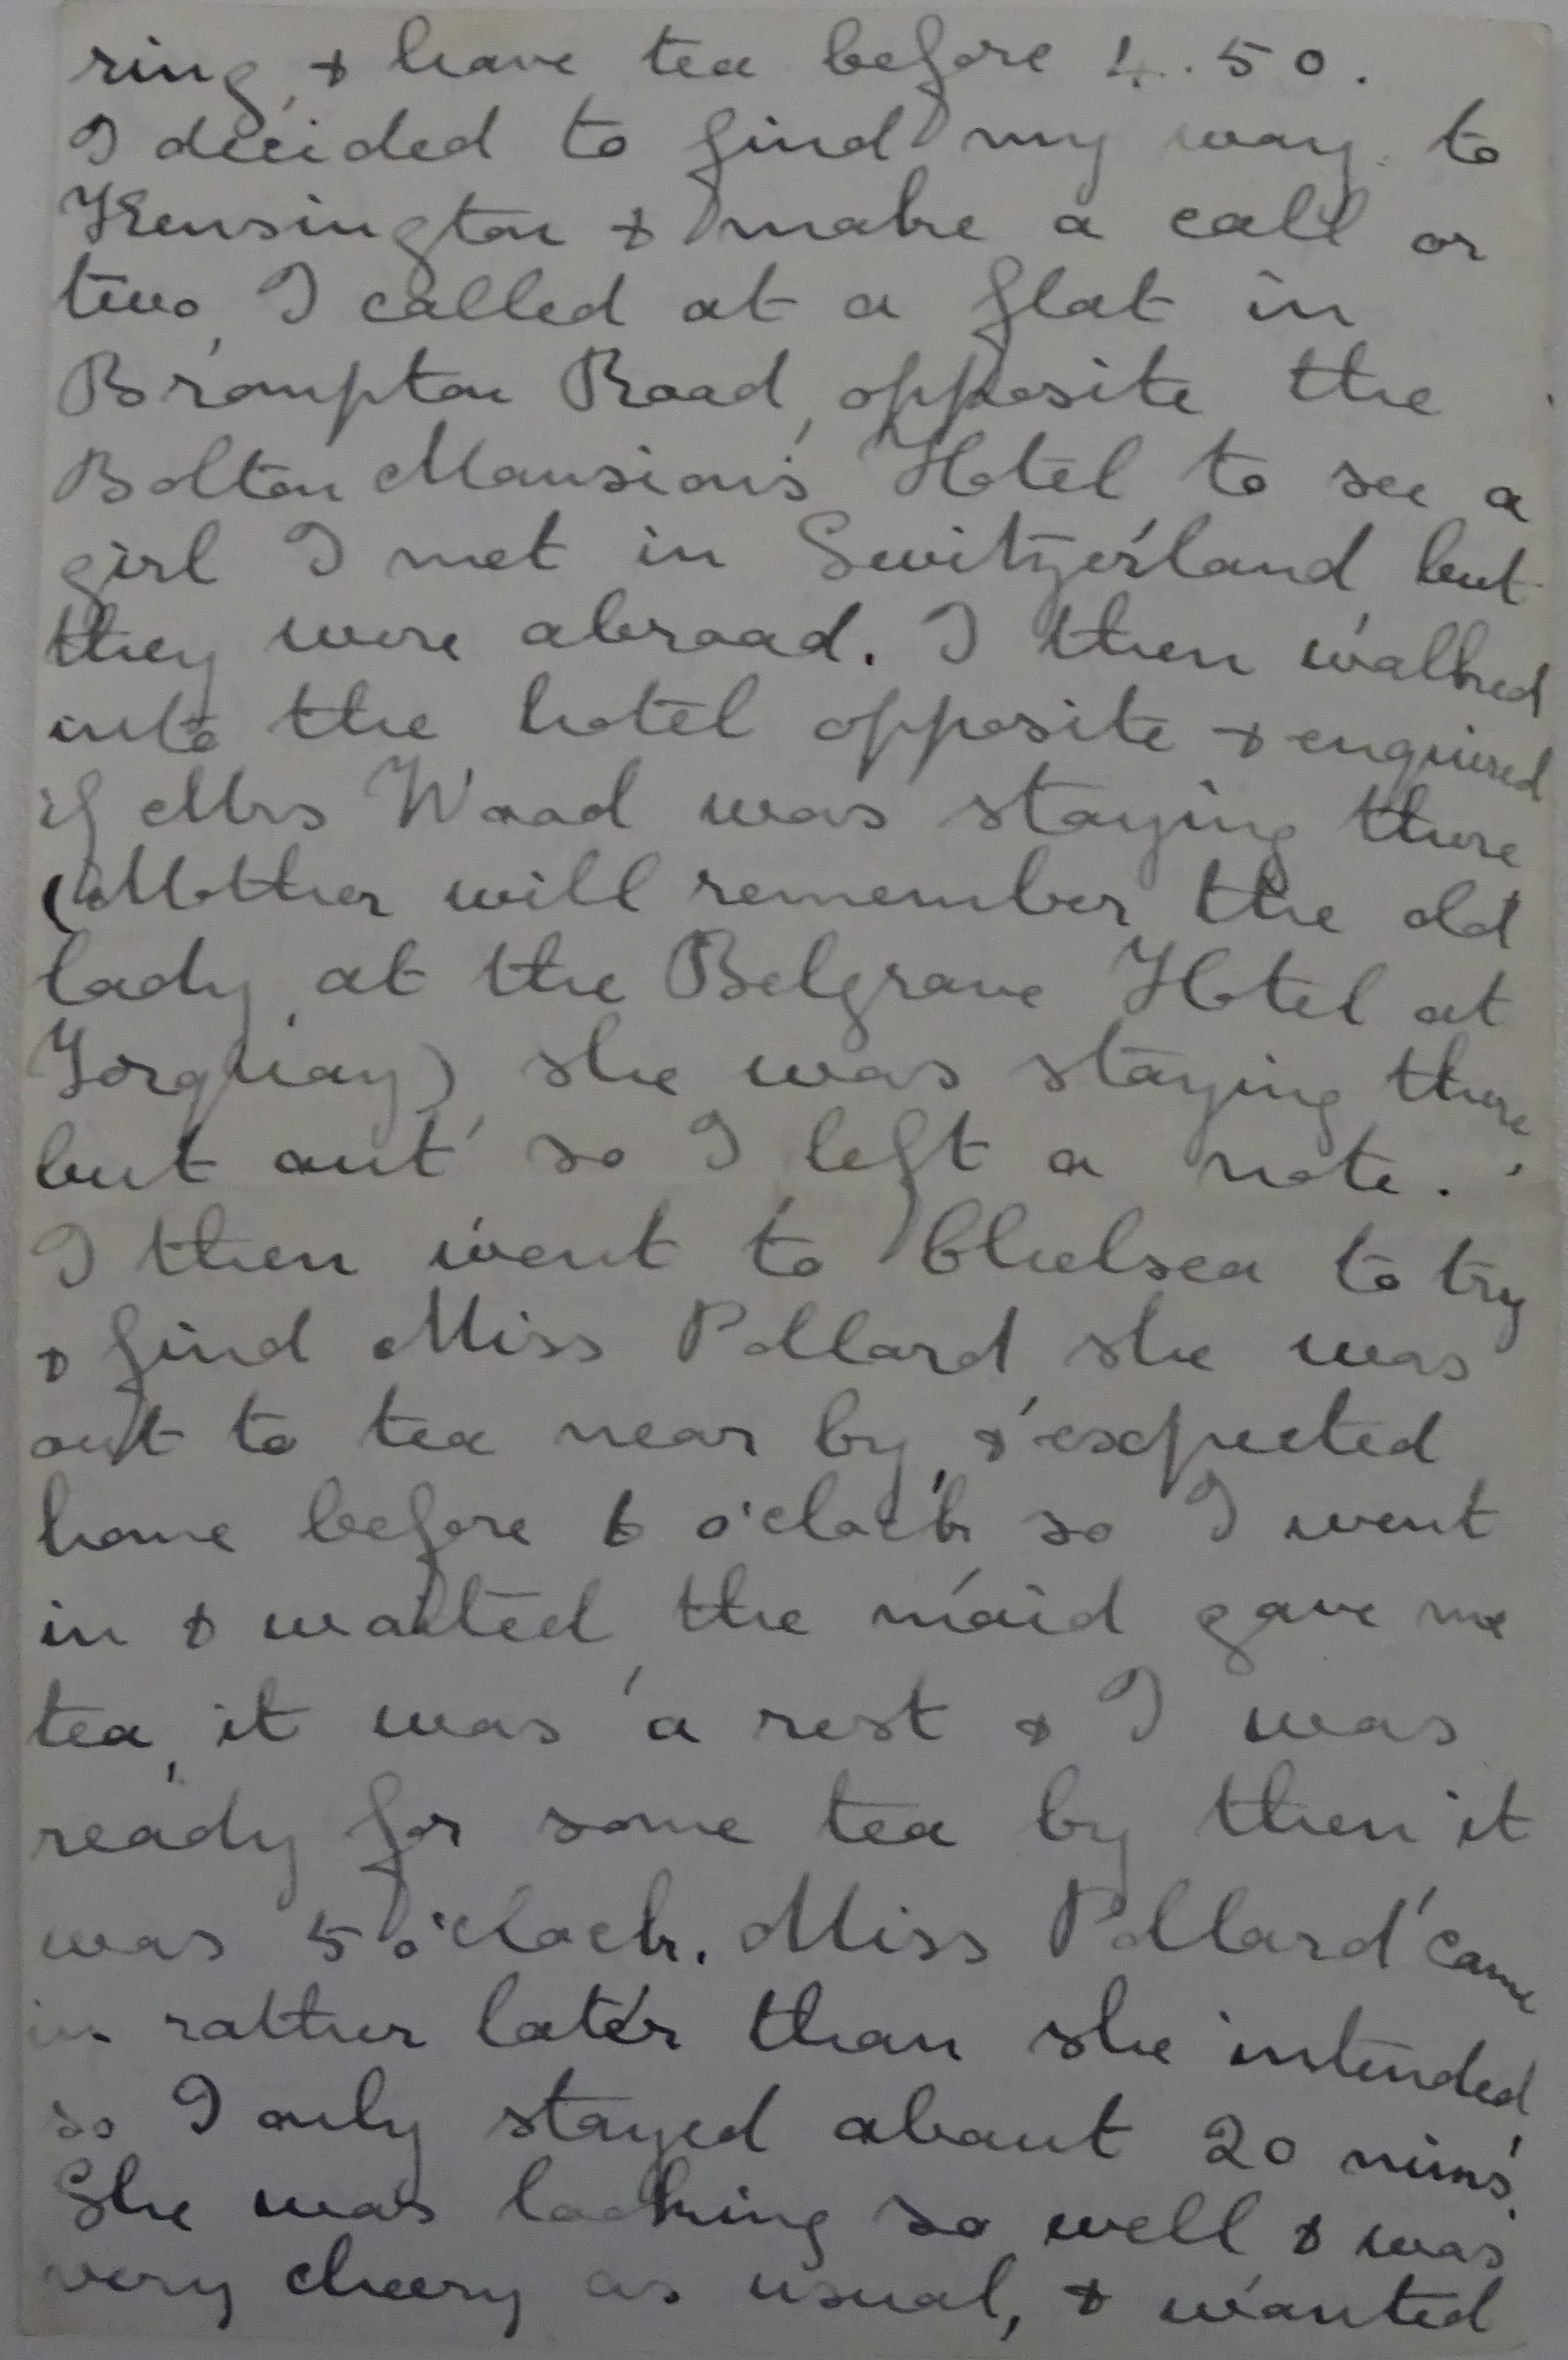 ring, & have tea before 4.50.
I decided to find my way to
Kensington & make a call or
two, I called at a flat in
Brompton Road, opposite the
Bolton Mansions Hotel to see a
girl I met in Switzerland but
they were abroad. I then walked
into the hotel opposite & enquired
if Mrs Wood was staying there
(Mother will remember the old
lady, at the Belgrave Hotel at
Torquay) she was staying there,
but out so I left a note.
I then went to Chelsea to try
& find Miss Pollard she was
out to tea near by, & expected
home before 6 o'clock so I went
in & waited, the maid gave me
tea, it was a rest & I was
ready for some tea by then it
was 5 o'clock. Miss Pollard came
in rather later than she intended,
so I only stayed about 20 mins.
She was looking so well & was
very cheery as usual, & wanted